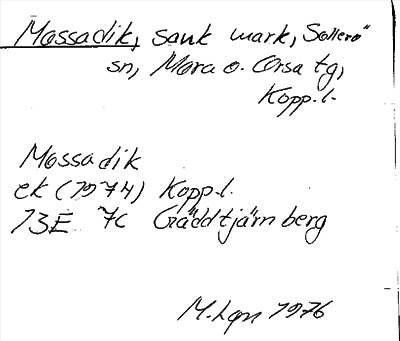 Mossadik, sank mark, Sollerö
sn, Mora o. Orsa tg,
Kopp.l.
Mossadik
ek (1974) Kopp.l.
13E 7c Gäddtjärnberg
M. Lgn 1976